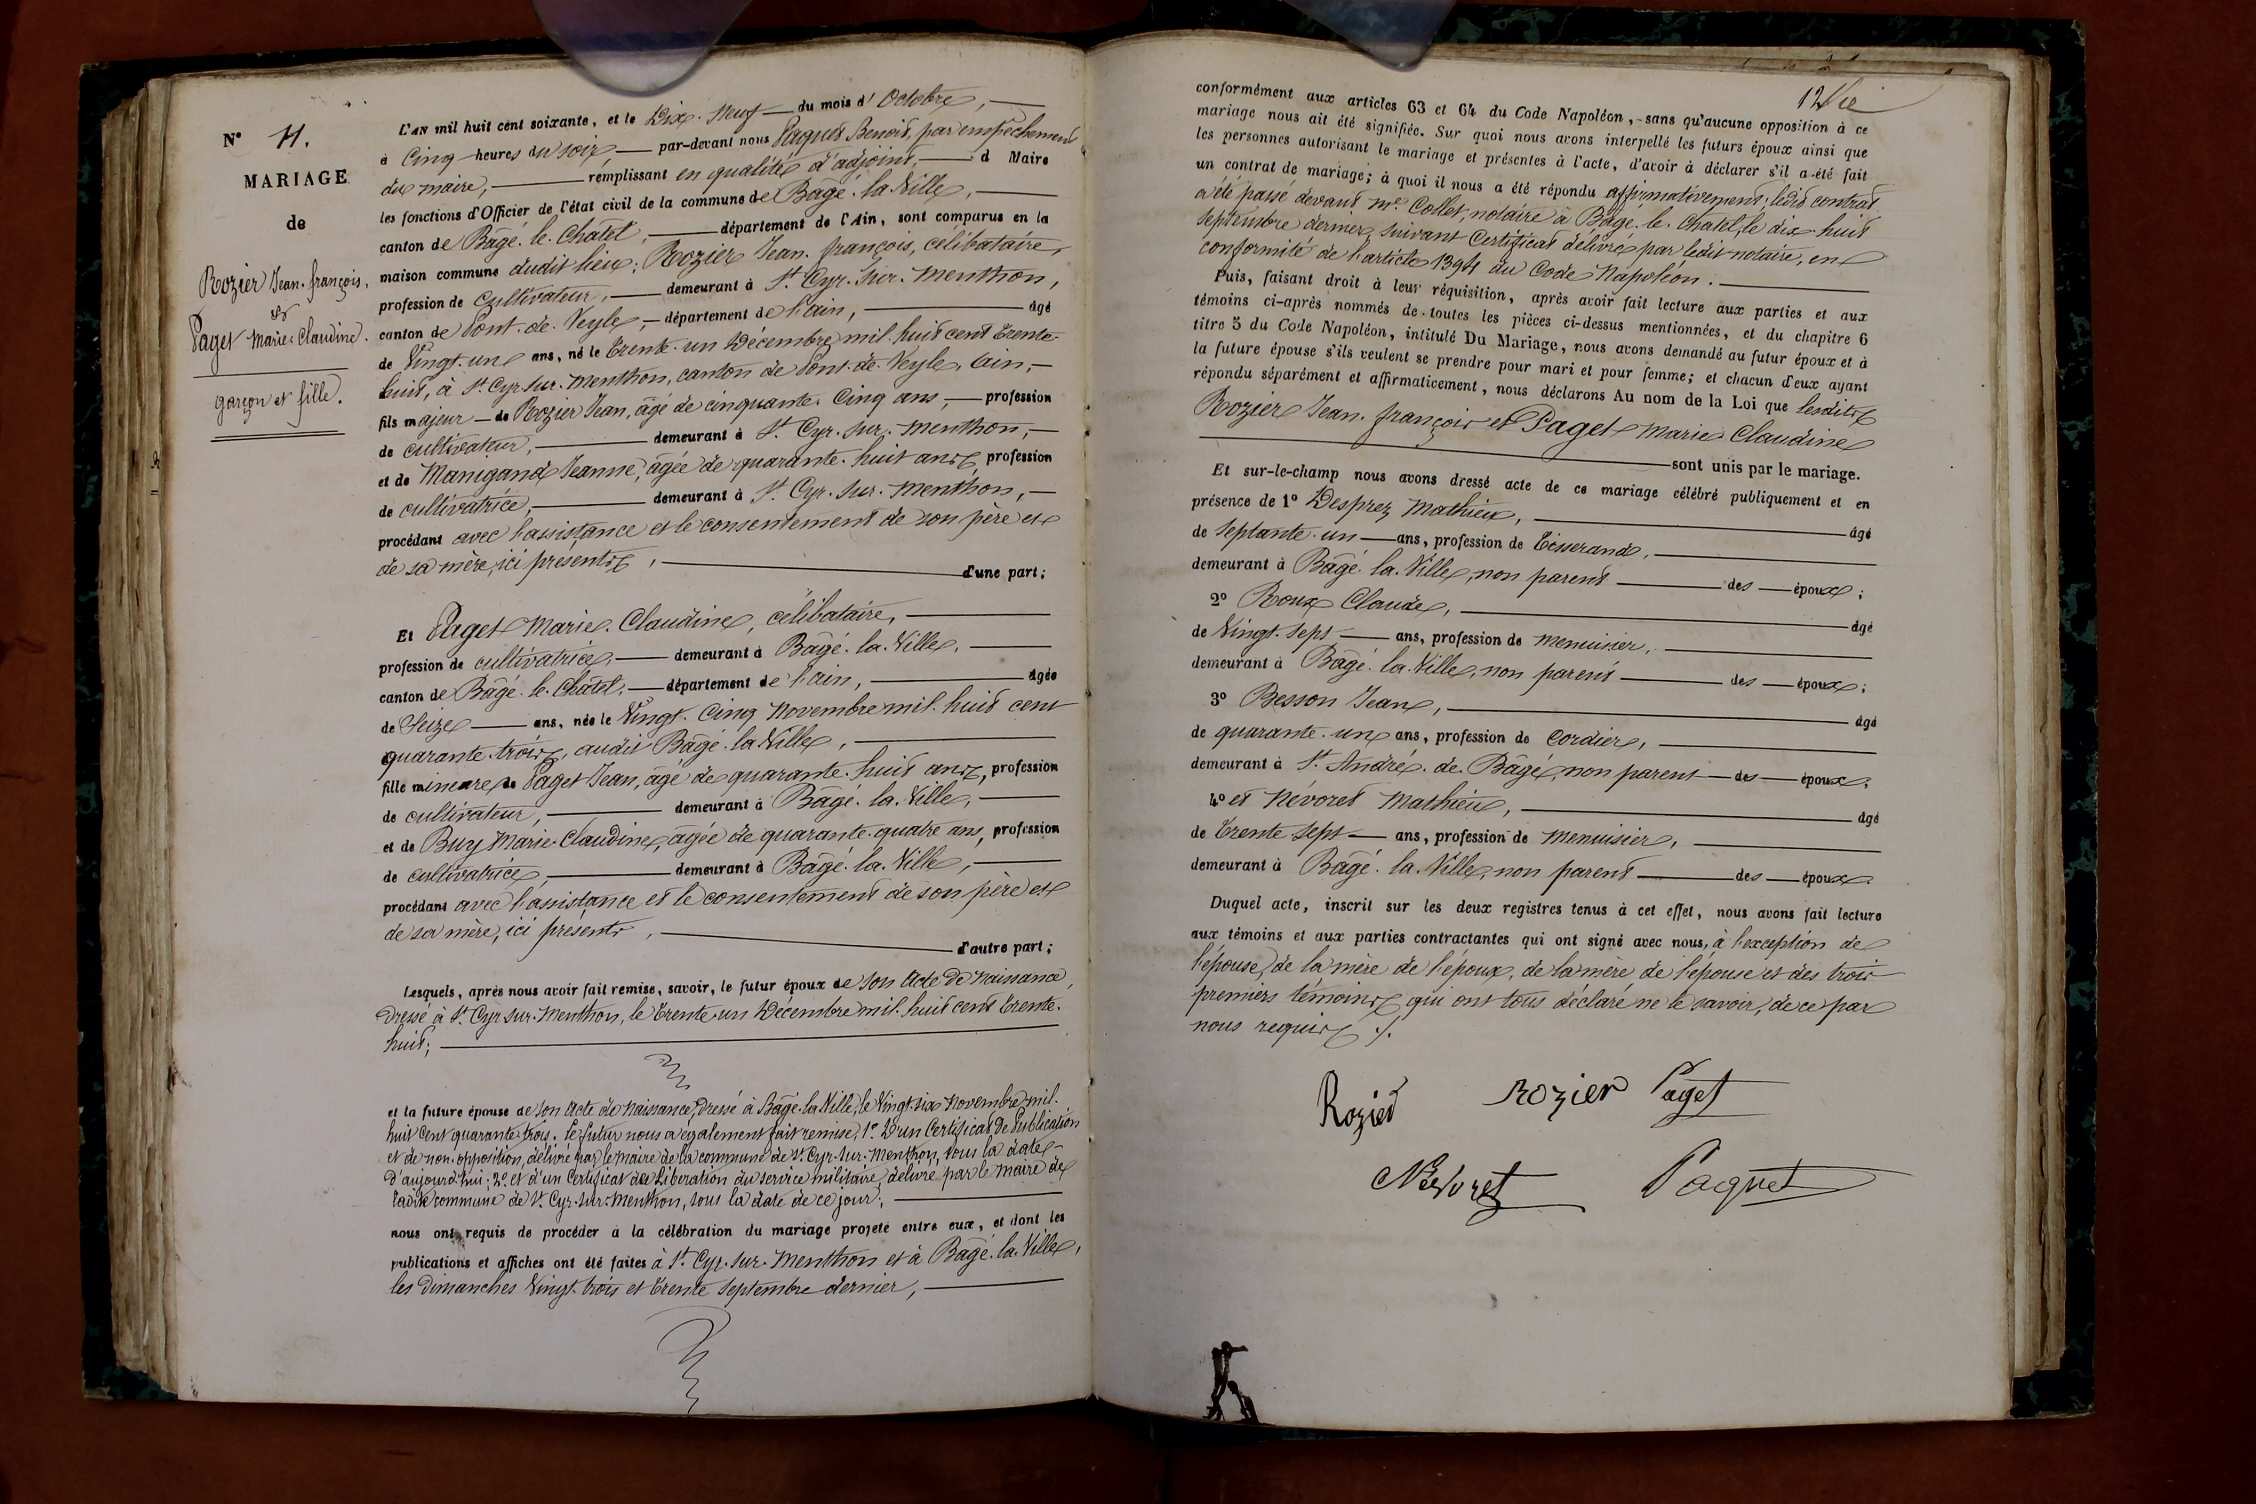 N° 11.
MARIAGE
de
Rozier Jean-françois,
et
Paget Marie-Claudine.
garçon et fille.
L'AN mil huit cent soixante, et le Dix-Neuf du mois d'Octobre,
à Cinq heures du soir, par-devant nous Paquet Benoit, par empêchement
du maire, remplissant en qualité d'adjoint, d Maire
les fonctions d'Officier de l'état civil de la commune de Bâgé-la-Ville,
canton de Bâgé-le-Châtel, département de l'Ain, sont comparus en la
maison commune dudit lieu; Rozier Jean-françois, célibataire,
profession de cultivateur, demeurant à St Cyr-sur-Menthon,
canton de Pont-de-Veyle, département de l'ain, âgé
de Vingt-un ans, né le Trente-un Décembre mil-huit cent trente-
huit, à St Cyr-sur-Menthon, canton de Pont-de-Veyle, ain,
fils majeur de Rozier Jean, âgé de cinquante-Cinq ans, profession
de cultivateur, demeurant à St Cyr-sur-Menthon,
et de Manigand Jeanne, âgée de quarante-huit ans, profession
de cultivatrice, demeurant à St Cyr-sur-Menthon,
procédant avec l'assistance et le consentement de son père et
de sa mère, ici présents, d'une part;
Et Paget Marie-Claudine, célibataire,
profession de cultivatrice, demeurant à Bâgé-la-Ville,
canton de Bâgé-le-Châtel, département de l'ain, âgée
de Seize ans, née le Vingt-Cinq Novembre mil-huit cent
quarante-trois, audit Bâgé-la-Ville,
fille mineure de Paget Jean, âgé de quarante-huit ans, profession
de cultivateur, demeurant à Bâgé-la-Ville,
et de Buy Marie-Claudine, âgée de quarante-quatre ans, profession
de cultivatrice, demeurant à Bâgé-la-Ville,
procédant avec l'assistance et le consentement de son père et
de sa mère, ici présents, d'autre part;
Lesquels, après nous avoir fait remise, savoir, le futur époux de son Acte de Naissance,
dressé à St Cyr-sur-Menthon, le Trente-un Décembre mil-huit cent trente-
huit;
et la future épouse de son Acte de Naissance, dressé à Bâgé-la-Ville, le Vingt-six Novembre mil-
huit cent quarante-trois. Le futur nous a également fait remise, 1° D'un Certificat de Publication
et de non-opposition, délivré par le maire de la commune de St Cyr-sur-Menthon, sous la date
d'aujourd'hui; 2° et d'un Certificat de Libération du service militaire, délivré par le maire de
ladite commune de St Cyr-sur-Menthon, sous la date de ce jour;
nous ont requis de procéder à la célébration du mariage projeté entre eux, et dont les
publications et affiches ont été faites à St Cyr-sur-Menthon et à Bâgé-la-Ville,
les dimanches Vingt-trois et trente septembre dernier,
conformément aux articles 63 et 64 du Code Napoléon, sans qu'aucune opposition à ce
mariage nous ait été signifiée. Sur quoi nous avons interpellé les futurs époux ainsi que
les personnes autorisant le mariage et présentes à l'acte, d'avoir à déclarer s'il a été fait
un contrat de mariage; à quoi il nous a été répondu affirmativement; ledit contrat
a été passé devant Me Collet, notaire à Bâgé-le-Châtel, le dix-huit
septembre dernier, suivant Certificat délivré par ledit notaire, en
conformité de l'article 1394 du Code Napoléon.
Puis, faisant droit à leur réquisition, après avoir fait lecture aux parties et aux
témoins ci-après nommés de toutes les pièces ci-dessus mentionnées, et du chapitre 6
titre 5 du Code Napoléon, intitulé Du Mariage, nous avons demandé au futur époux et à
la future épouse s'ils veulent se prendre pour mari et pour femme; et chacun d'eux ayant
répondu séparément et affirmativement, nous déclarons Au nom de la Loi que lesdits
Rozier Jean-françois et Paget Marie-Claudine
sont unis par le mariage.
Et sur-le-champ nous avons dressé acte de ce mariage célébré publiquement et en
présence de 1° Desprez Mathieu, âgé
de septante-un ans, profession de Tisserand,
demeurant à Bâgé-la-Ville, non parent des époux;
2° Roux Claude, âgé
de Vingt-sept ans, profession de menuisier,
demeurant à Bâgé-la-Ville, non parent des époux;
3° Besson Jean, âgé
de quarante-un ans, profession de cordier,
demeurant à St André-de-Bâgé, non parent des époux;
4° et Névoret Mathieu, âgé
de trente-sept ans, profession de menuisier,
demeurant à Bâgé-la-Ville, non parent des époux.
Duquel acte, inscrit sur les deux registres tenus à cet effet, nous avons fait lecture
aux témoins et aux parties contractantes qui ont signé avec nous, à l'exception de
l'épouse, de la mère de l'époux, de la mère de l'épouse et des trois
premiers témoins, qui ont tous déclaré ne le savoir, de ce par
nous requis./.
Rozier Rozier Paget
Nevoret Paquet